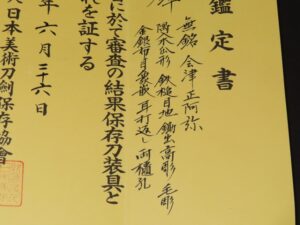 鑑定書
無銘 会津正阿弥
隅入木瓜形 鉄槌目地 鋤出高彫 毛彫
金銀布目象嵌 耳打返し 両櫃孔
に於て審査の結果保存刀装具と
を証する
年六月二十六日
日本美術刀劍保存協會